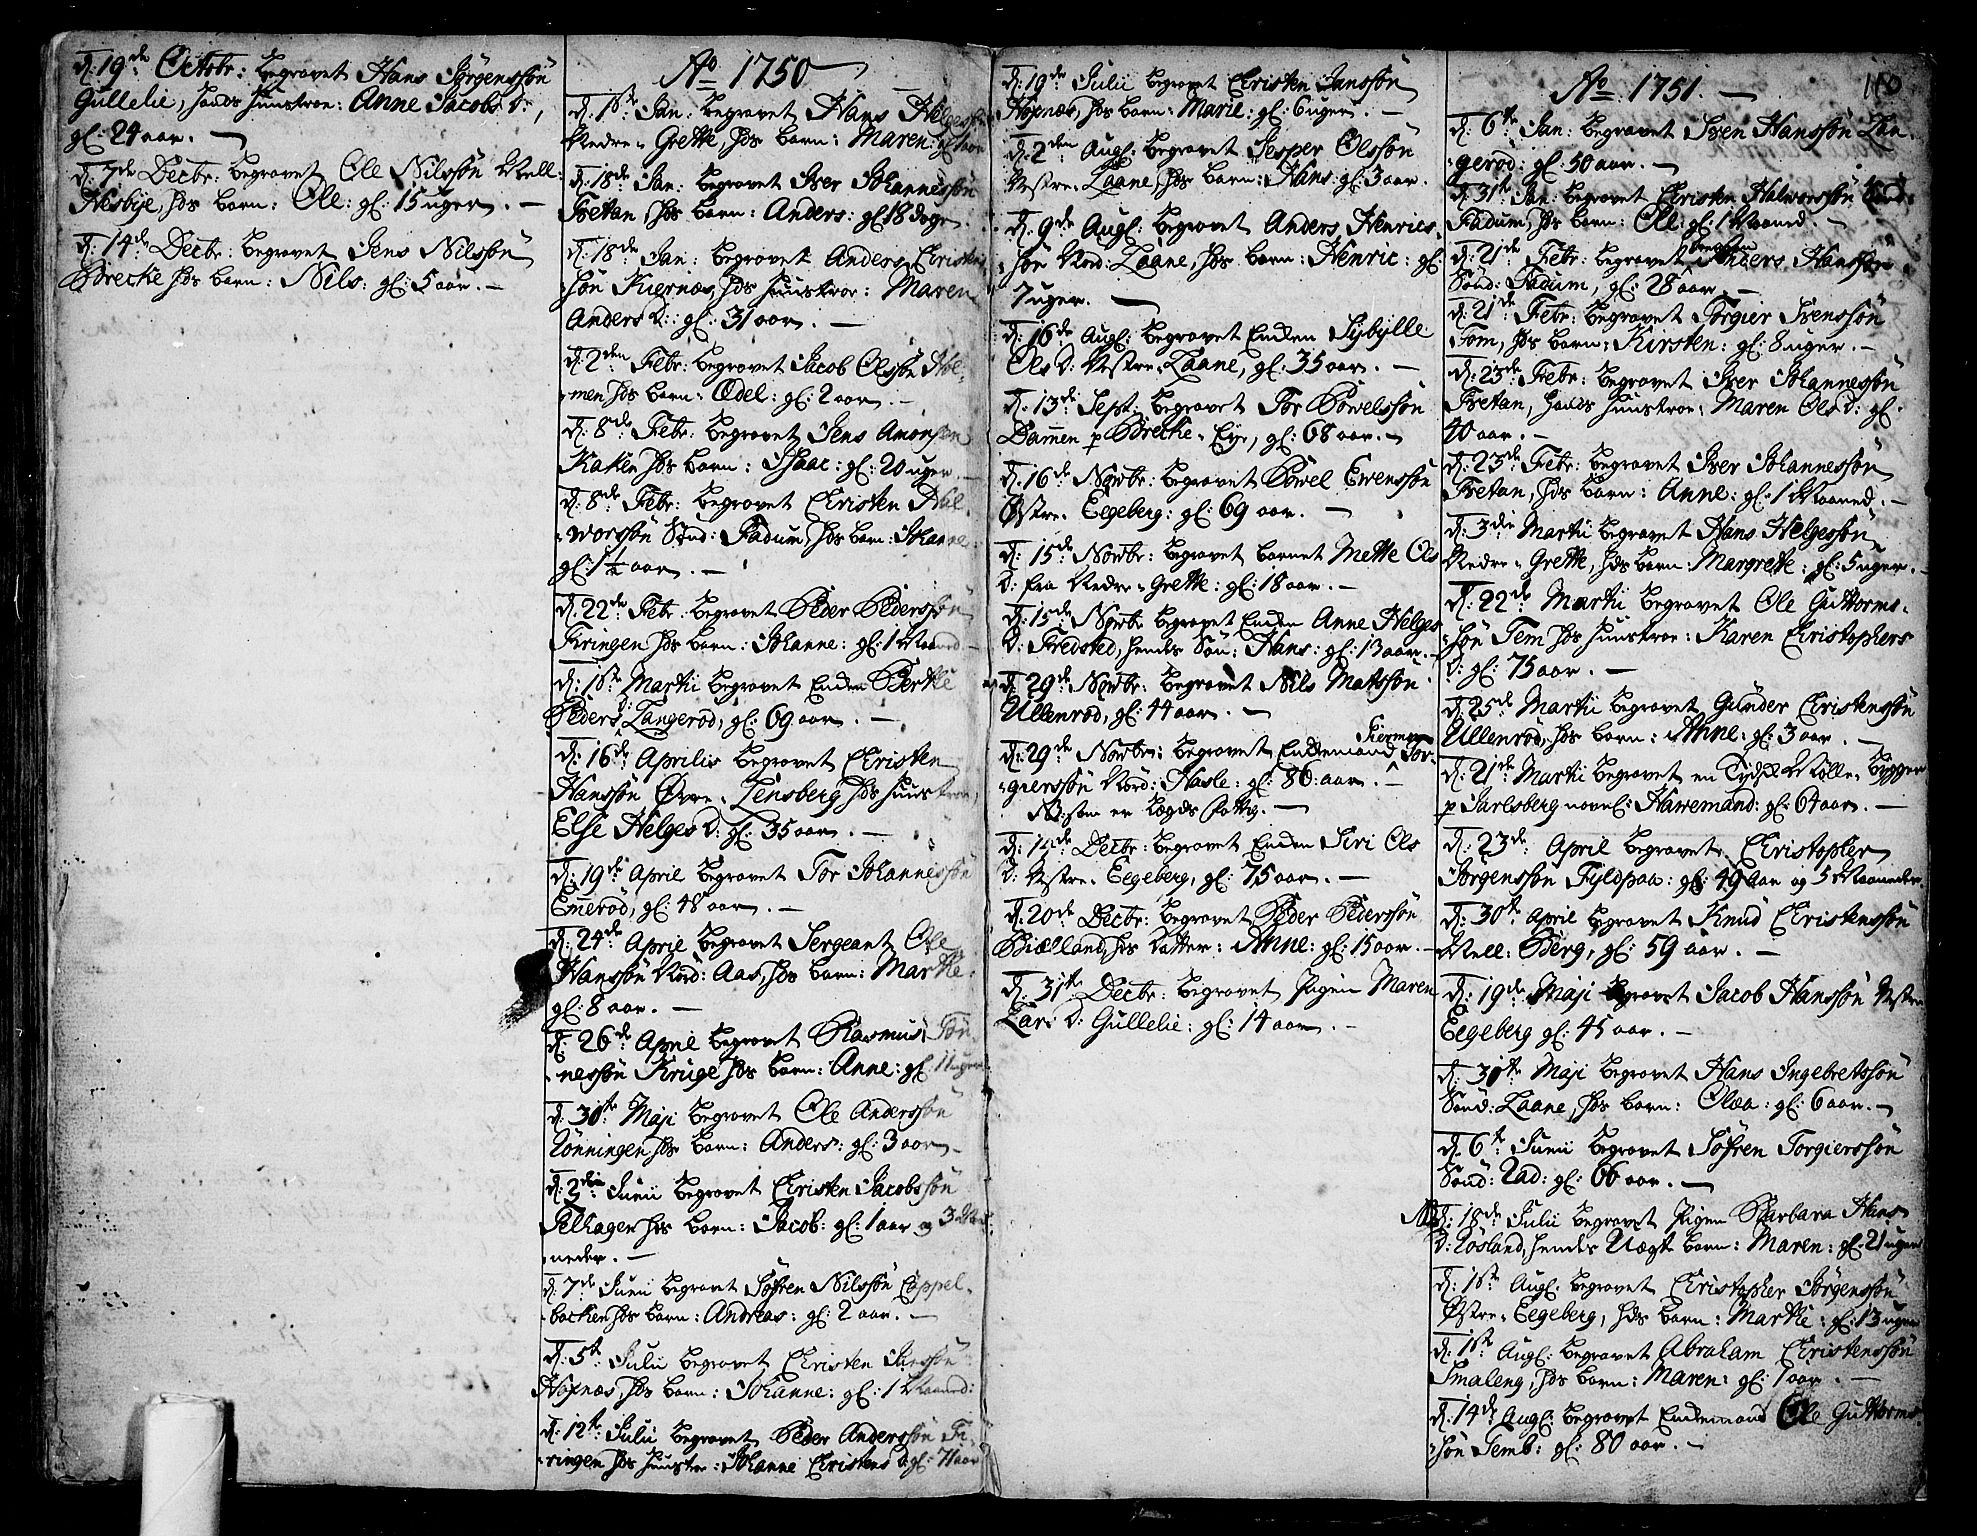 d: 19de Octobr: begravet Hans Jörgenssön
Gullelie, hands hunstroe: Anne Jacobs D:,
gl: 24 aar. —
d: 7de Decbr: begravet Ole Nilssön Mell:
Nesbÿe, hds barn: Ole: gl: 15 uger. —
d: 14de Decbr: begravet Jens Nilssön
Brecke hds barn: Nils: gl: 5 aar. —
Ao 1750 —
d: 1ste Jan: begravet Hans Helges
Nedre-Grette, hds barn: Maren: gl: 1 aar
d: 18de Jan: begravet Iver Johannessön
Fretan, hds barn: Anders: gl 18 doge
d: 18de Jan: begravet Anders Christen
sön Kiernæs, hds hunstroe: Maren
Anders D: gl: 31 aar. —
d: 2den Febr: begravet Jacob Olssön Hol-
men hds barn: Ædel: gl: 2 aar. —
d: 8de Febr: begravet Jens Amonsen
Kaken hds barn: Isaac: gl: 20 uger. —
d: 8de Febr: begravet Christen Hal-
worssön Sönd: Fadum, hds barn: Johanne:
gl: 1½ aar. —
d: 22de Febr: begravet Peder Pederssön
Firingen hds barn: Johanne: gl: 1 Maaned —
d: 1ste Martii begravet Enden Berthe
Peders D: Langeröd, gl: 69 aar. —
d: 16de Aprilis begravet Christen
Hanssön Øvre-Lensberg hds hunstroe,
Else Helges D: gl: 35 aar. —
d: 19de April begravet Tor Johannessön
Emeröd, gl: 48 aar. —
d: 24de April begravet Sergeant Ole
Hanssön Nord: Aas, hds barn: Marthe:
gl: 8 aar. —
d: 26de April begravet Rasmus Tön
nessön Kruge hds barn: Anne: gl: 11 uger
d: 30te Maji begravet Ole Anderssön
Rönningen hds barn: Anders: gl: 3 aar —
d: 3die Junii begravet Christen Jacobssön
Selhagen hds barn: Jacob: gl: 1 aar og 3 Maa
neder. —
d: 7de Junii begravet Söfren Nilssön Cappel-
backen hds barn: Andreas: gl: 2 aar. —
d: 5te Julii begravet Christen
Hoxnæs, hds barn: Johanne: gl: 1 Maaned:
d: 12te Julii begravet Peder Anderssön Fi-
ringen hds hunstr: Johanne Christens D: gl: 71 aar
d: 19de Julii begravet Christen Janssön
Hoxnæs, hds barn: Marie: gl: 6 uger. —
d: 2den Augl: begravet Jesper Olssön
Vestre-Laane, hds barn: Hans: gl: 3 aar.
d: 9de Augl: begravet Anders Henrics-
sön Nord: Laane, hds barn: Henric: gl:
7 uger. —
d: 16de Augl: begravet Enden Sybylle
Ols D: Vestre-Laane, gl: 35 aar. —
d: 13de Sept: begravet Tor Powelssön
Dammen p Brecke-Eye, gl: 68 aar. —
d: 16de Novbr: begravet Powel Ewenssön
Østre-Eegeberg: gl: 69 aar. —
d: 15de Novbr: begravet barnet Mette Ols
D: fra Nedre-Grette: gl: 18 aar. —
d: 15de Novbr: begravet Enden Anne Helges
D: Fredsted, hendes Sön: Hans: gl: 13 aar. —
d: 29de Novbr: begravet Nils Matssön
Ullenröd, gl: 44 aar. —
d: 29de Novbr: begravet Enckemand Tor-
gierssön Nord: Hasle: gl: 86 aar. —
NB: som er Lægds fattig. —
d: 14de Decbr: begravet Enden Siri Ols
D: Vestre-Eegeberg, gl: 75 aar. —
d: 20de Decbr: begravet Peder Pederssön
Biælland, hds datter: Anne: gl: 15 aar. —
d: 31te Decbr: begravet Pigen Maren
Lars D: Gullelie: gl: 14 aar. —
110
Ao 1751. —
d: 6te Jan: begravet Sven Hanssön Lan-
geröd: gl: 50 aar. —
d: 31te Jan: begravet Christen Halworssön Sönd:
Fadum, hds barn: Ole: gl: 1 Maaned. —
d: 21de Febr: begravet Anders Hanssön
Sönd: Fadum, gl: 28 aar. —
d: 21de Febr: begravet Torgier Svenssön
Tom, hds barn: Kirsten: gl: 8 uger. —
d: 23de Febr: begravet Iver Johannessön
Fretan, hands hunstroe: Maren Ols D: gl:
40 aar. —
d: 23de Febr: begravet Iver Johannessön
Fretan, hds barn: Anne: gl: 1 Maaned. —
d: 3die Martii begravet Hans Helgessön
Nedre-Grette, hds barn: Margrethe: gl: 5 uger. —
d: 22de Martii begravet Ole Guttorms-
sön Tem hds hunstroe: Karen Christophers
D: gl: 75 aar. —
d: 25de Martii begravet Gunder Christenssön
Ullenröd, hds barn: Anne: gl: 3 aar. —
d: 21de Martii begravet en Tydsk Mölle-Bygger
p Jarlsberg navnl: Hawemand: gl: 64 aar. —
d: 23de April begravet Christopher
Jörgenssön Fyldpaa: gl: 49 aar og 5 Maaneder.
d: 30te April begravet Knud Christenssön
Mell: Berg, gl: 59 aar. —
d: 19de Maji begravet Jacob Hanssön Vestre
Eegeberg gl: 45 aar. —
d: 30te Maji begravet Hans Ingebretssön
Sönd: Laane, hds barn: Olæa: gl: 6 aar. —
d: 6te Junii begravet Söfren Torgierssön
Sönd: Rad: gl: 66 aar. —
NB d: 18de Julii begravet Pigen Barbara Hans
D: Rösland, hendes Uægte barn: Maren: gl: 21 uger
d: 1ste Augl: begravet Christopher Jörgenssön
Østre-Eegeberg, hds barn: Marthe: gl: 13 uger
d: 1ste Augl: begravet Abraham Christenssön
Smaleng, hds barn: Maren: gl: 1 aar. —
d: 14de Augl: begravet Enckemand Ole Guttorms-
sön Temb: gl: 80 aar. —